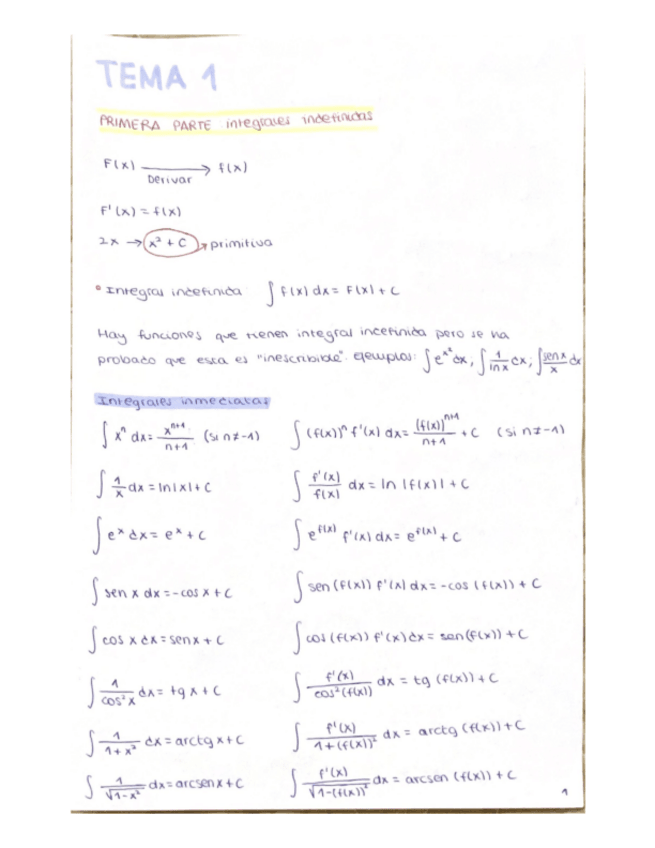 TEMA 1
PRIMERA PARTE integrales indefinidas
F(x) ⟶ f(x)
Derivar
F'(x) = f(x)
2x → x² + C → primitiva
• Integral indefinida ∫ f(x) dx = F(x) + C
Hay funciones que tienen integral indefinida pero se ha
probado que esta es "inescribible". ejemplos: ∫ e^(x²) dx; ∫ 1/ln x dx; ∫ sen x/x dx
Integrales inmediatas
∫ xⁿ dx = x^(n+1)/(n+1) (si n ≠ -1) ∫ (f(x))ⁿ f'(x) dx = (f(x))^(n+1)/(n+1) + C (si n ≠ -1)
∫ 1/x dx = ln|x| + C ∫ f'(x)/f(x) dx = ln |f(x)| + C
∫ eˣ dx = eˣ + C ∫ e^(f(x)) f'(x) dx = e^(f(x)) + C
∫ sen x dx = -cos x + C ∫ sen (f(x)) f'(x) dx = -cos (f(x)) + C
∫ cos x dx = sen x + C ∫ cos (f(x)) f'(x) dx = sen (f(x)) + C
∫ 1/cos² x dx = tg x + C ∫ f'(x)/cos² (f(x)) dx = tg (f(x)) + C
∫ 1/(1+x²) dx = arctg x + C ∫ f'(x)/(1+(f(x))²) dx = arctg (f(x)) + C
∫ 1/√(1-x²) dx = arcsen x + C ∫ f'(x)/√(1-(f(x))²) dx = arcsen (f(x)) + C
1